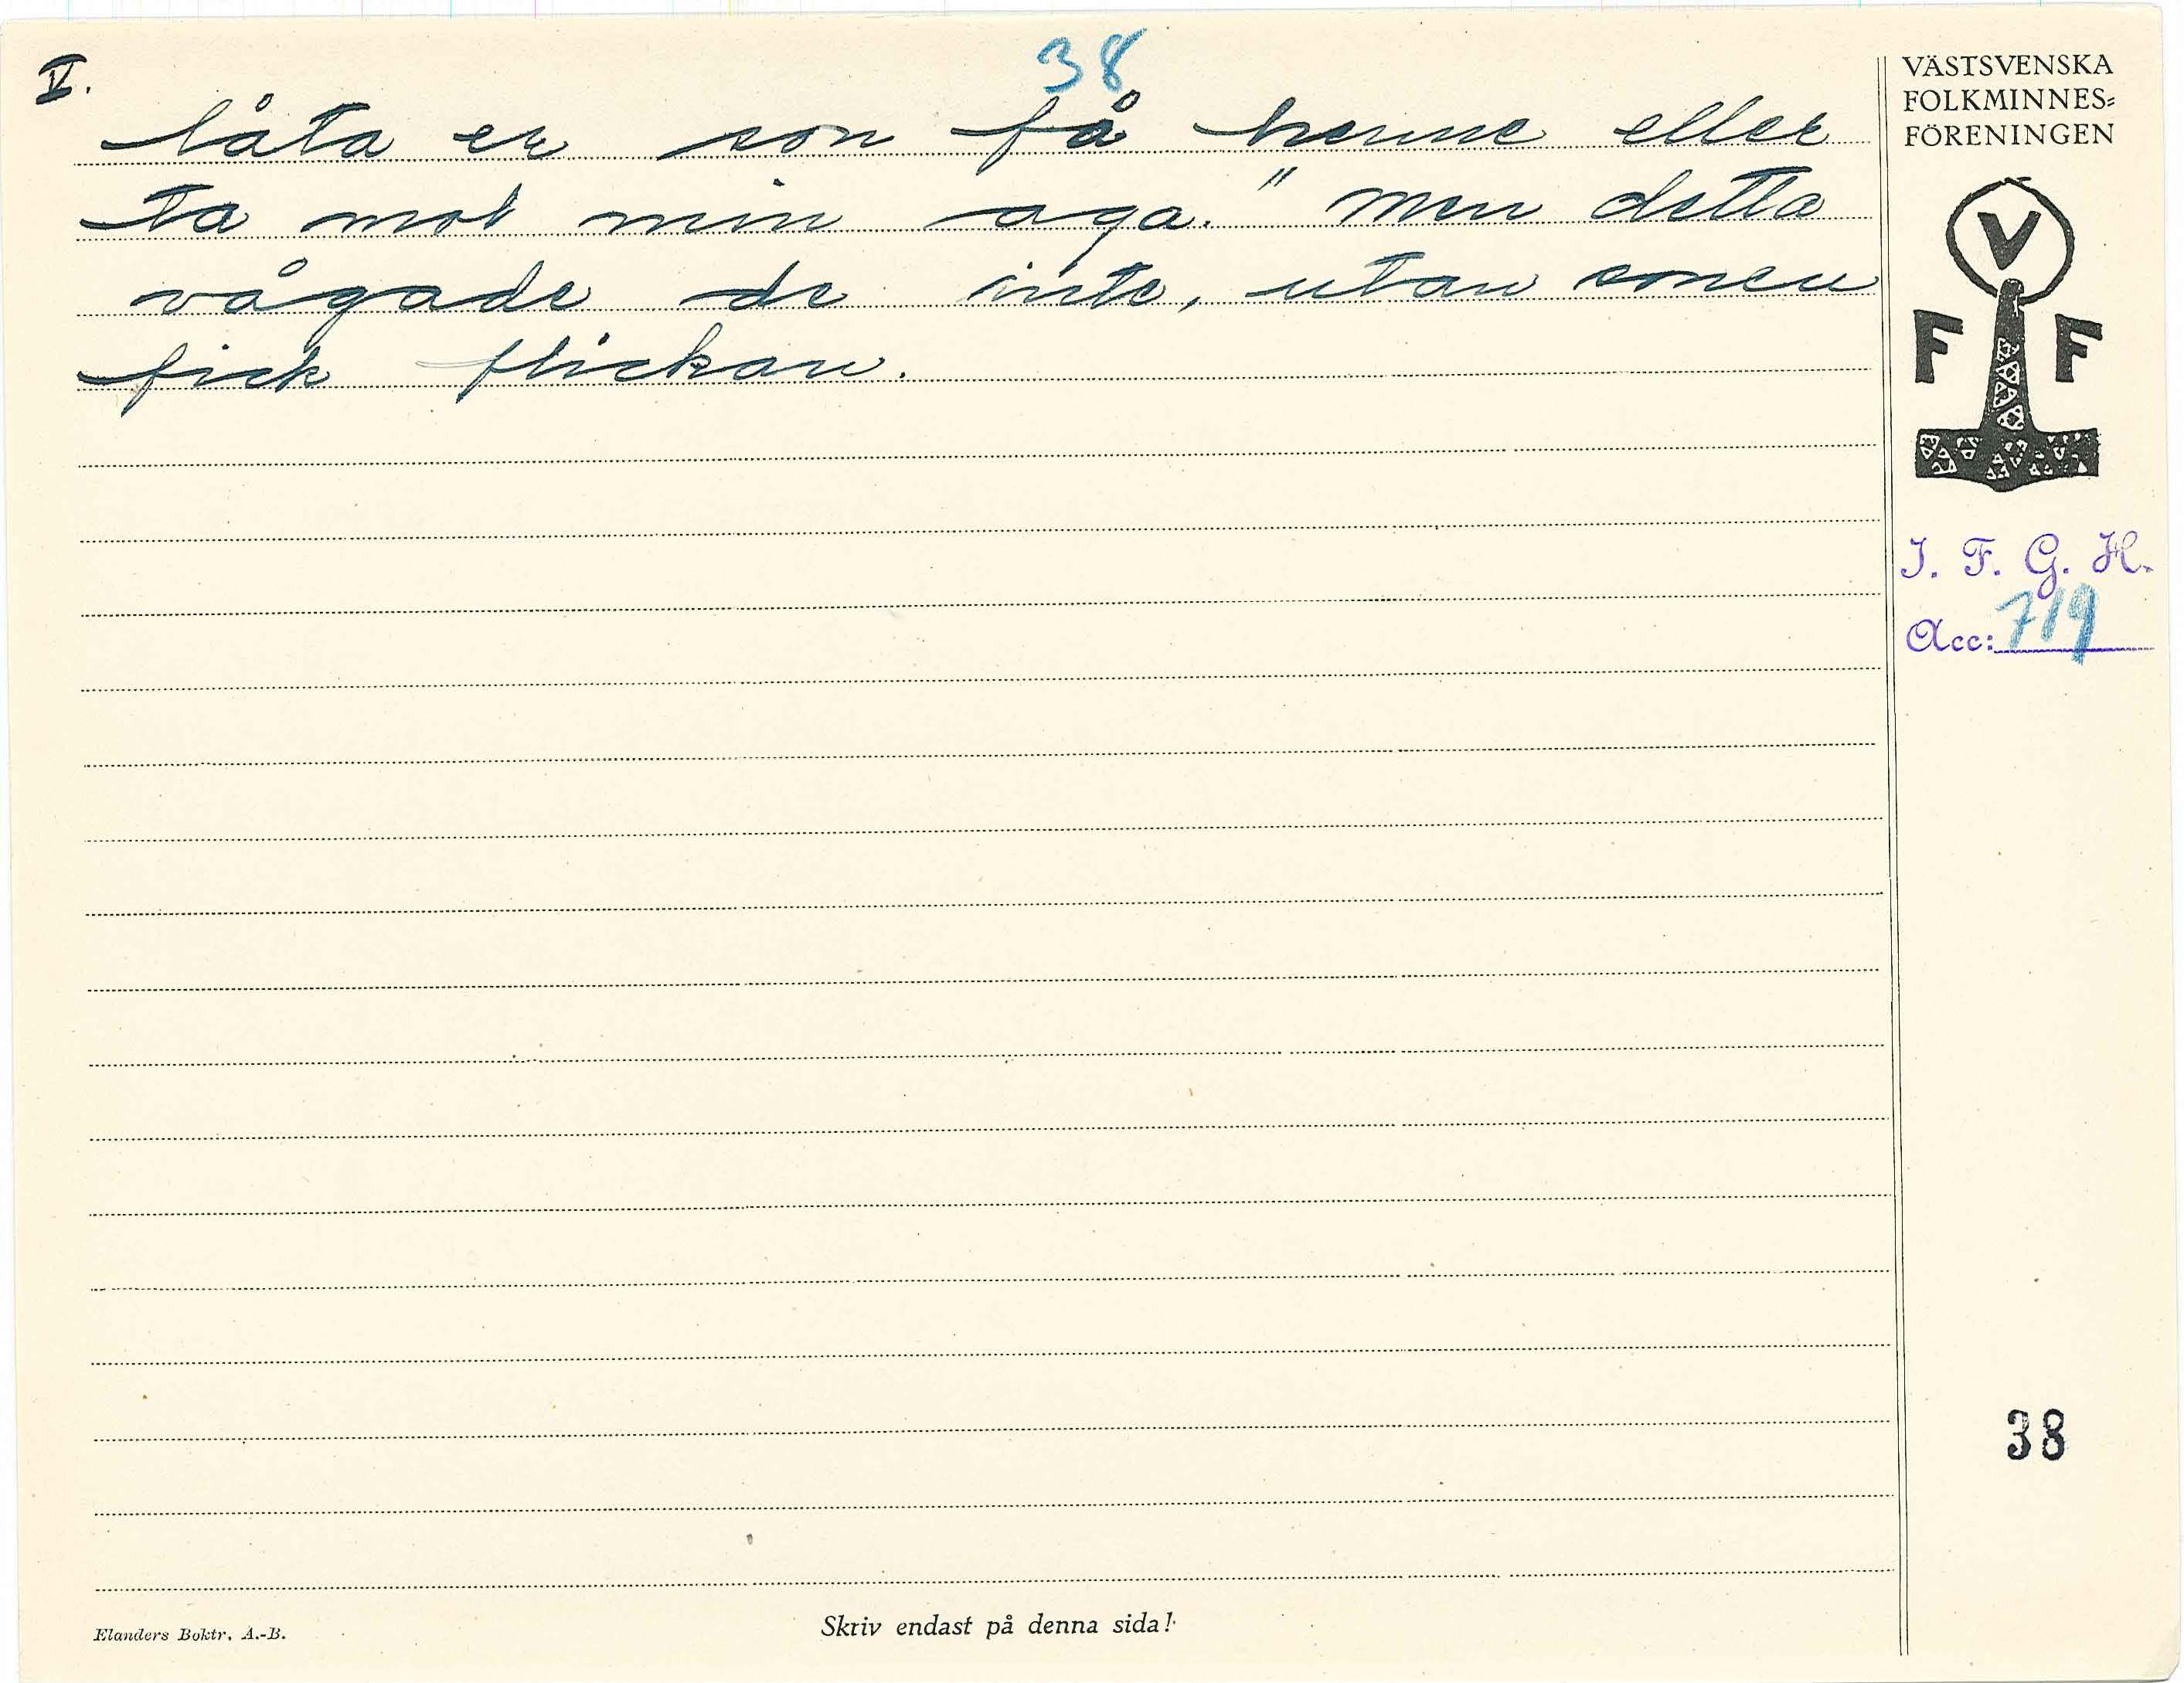 V.
38
låta er son få henne eller
ta mot min aga." Men detta
vågade de inte, utan sonen
fick flickan.
VÄSTSVENSKA
FOLKMINNES-
FÖRENINGEN
V
F F
I. F. G. H.
Acc: 719
38
Elanders Boktr. A.-B.
Skriv endast på denna sida!